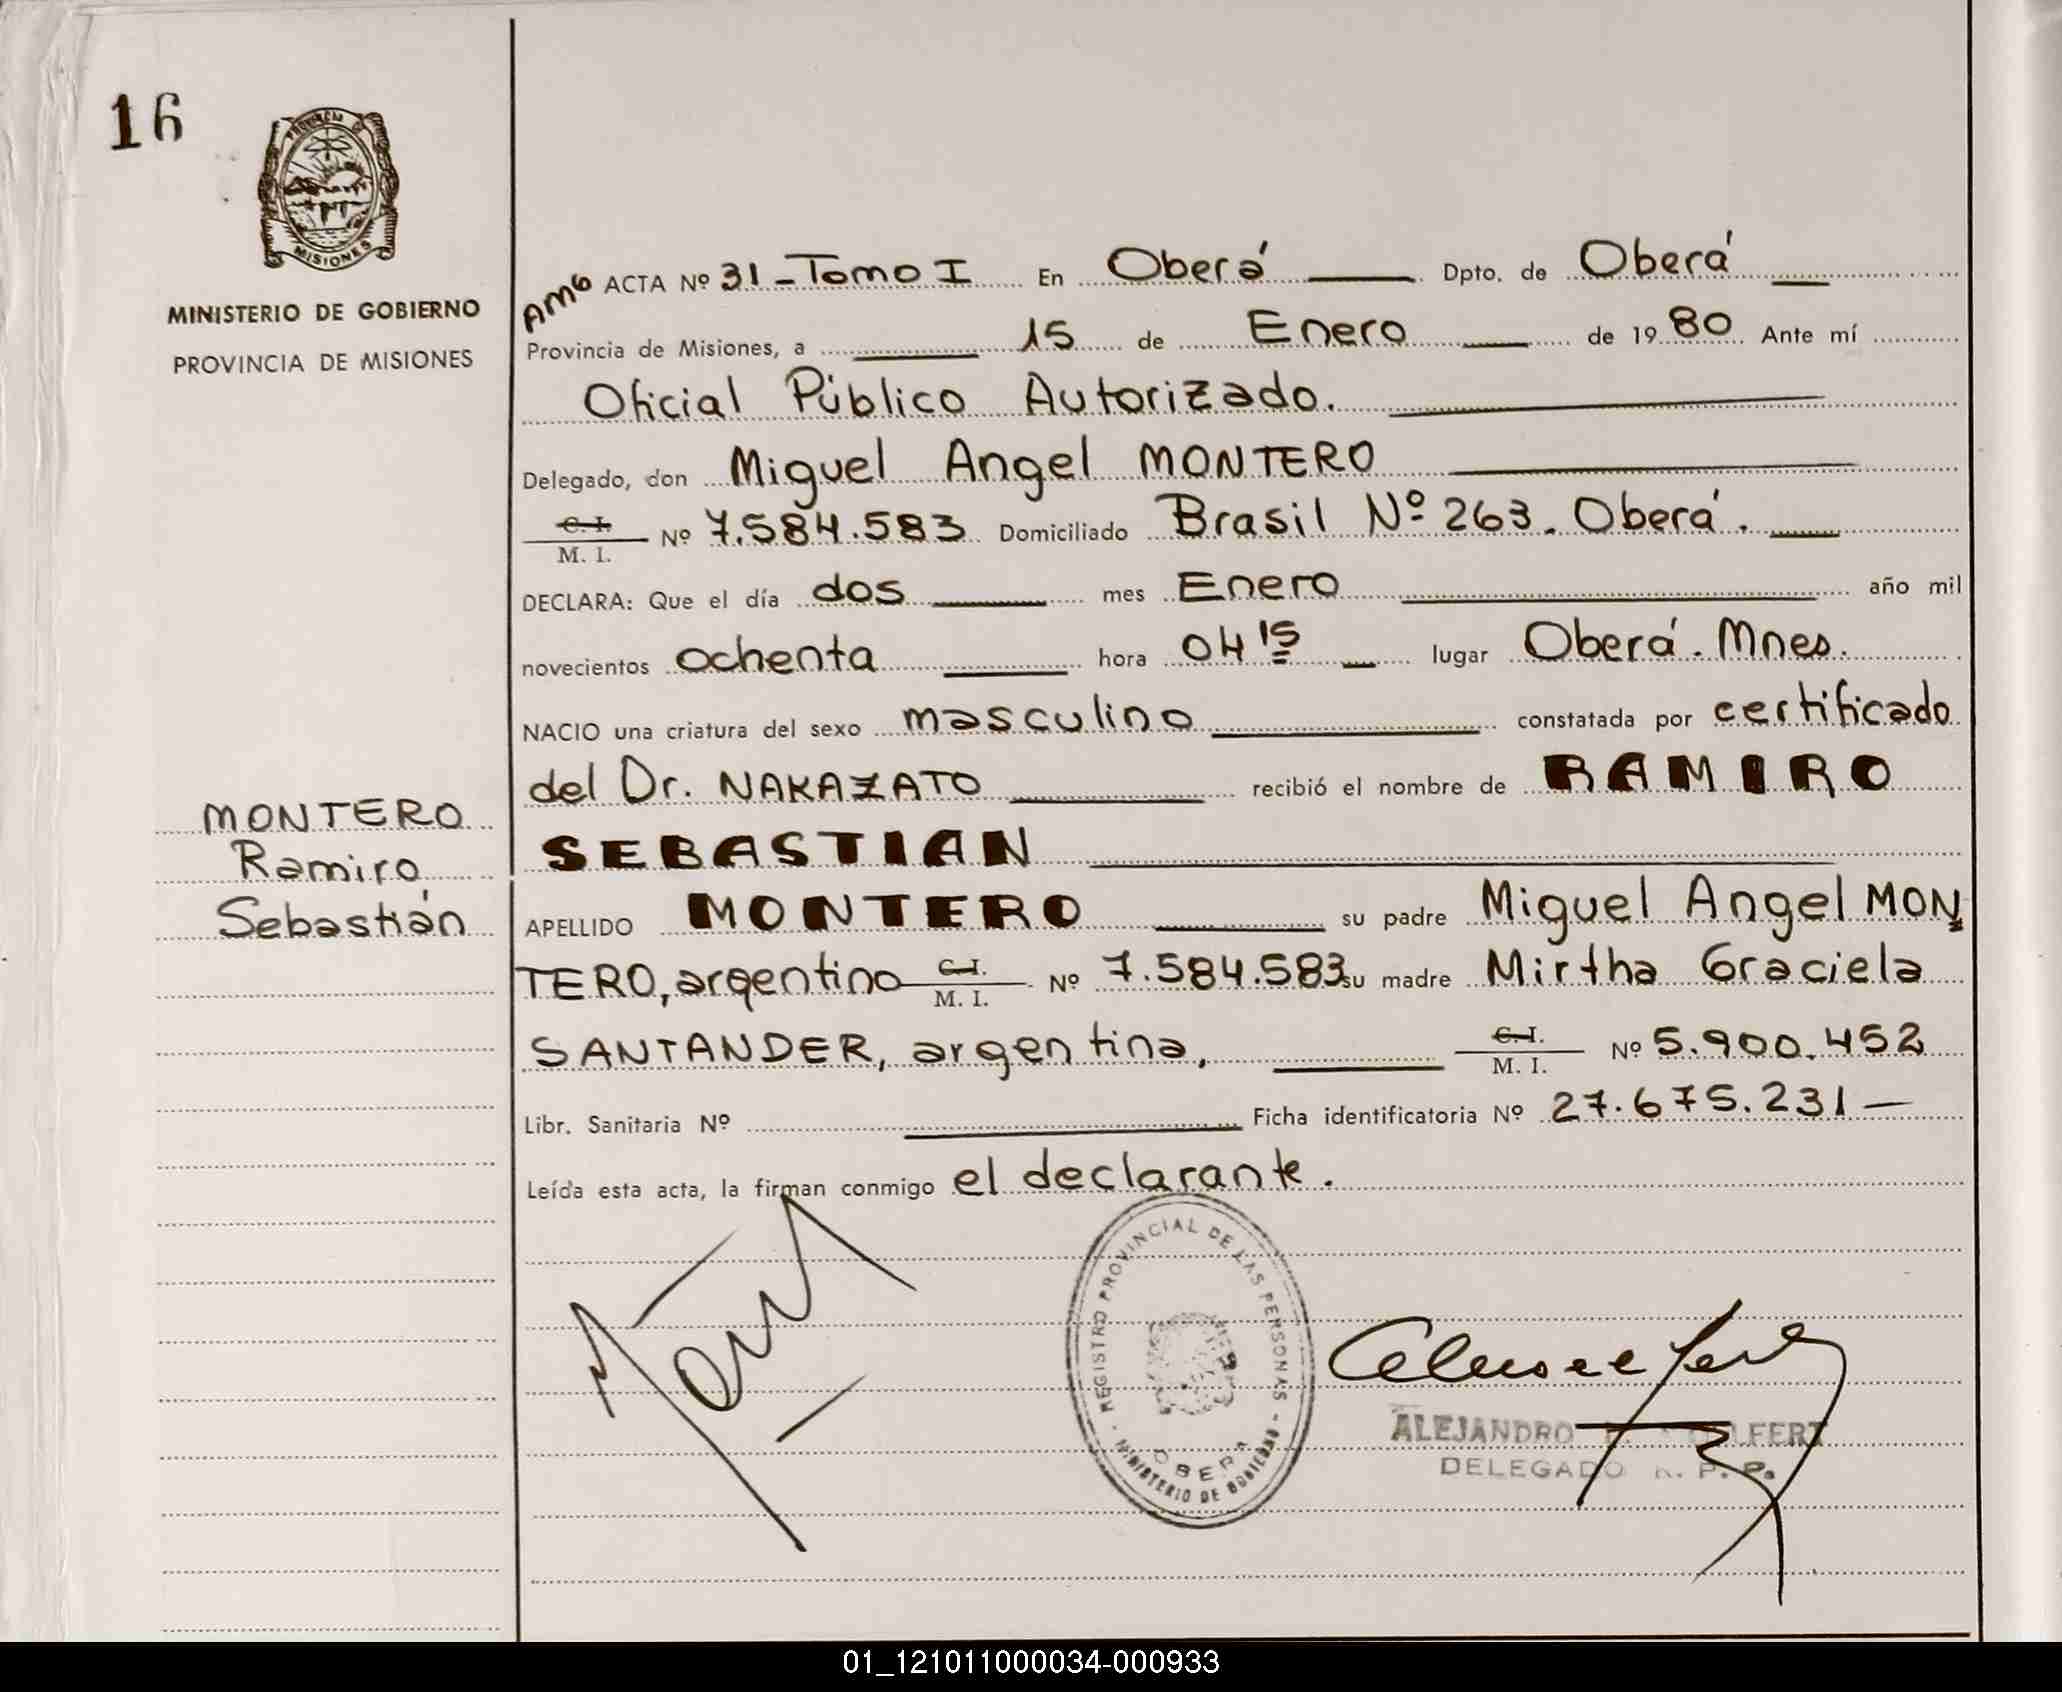 16
PROVINCIA DE
MISIONES
MINISTERIO DE GOBIERNO
PROVINCIA DE MISIONES
MONTERO
Ramiro
Sebastián
ACTA Nº 31 - Tomo I En Oberá Dpto. de Oberá
Provincia de Misiones, a 15 de Enero de 1980 Ante mí
Oficial Público Autorizado.
Delegado, don Miguel Angel MONTERO
C. I.
M. I. Nº 7.584.583 Domiciliado Brasil Nº 263. Oberá.
DECLARA: Que el día dos mes Enero año mil
novecientos ochenta hora 04 15 lugar Oberá. Mnes.
NACIO una criatura del sexo masculino constatada por certificado
del Dr. NAKAZATO recibió el nombre de RAMIRO
SEBASTIAN
APELLIDO MONTERO su padre Miguel Angel MON
TERO, argentino C. I. M. I. Nº 7.584.583 su madre Mirtha Graciela
SANTANDER, argentina, C. I. M. I. Nº 5.900.452
Libr. Sanitaria Nº Ficha identificatoria Nº 27.675.231 —
Leída esta acta, la firman conmigo el declarante.
REGISTRO PROVINCIAL DE LAS PERSONAS
OBERA
MINISTERIO DE GOBIERNO
ALEJANDRO
DELEGADO R. P. P.
01_121011000034-000933